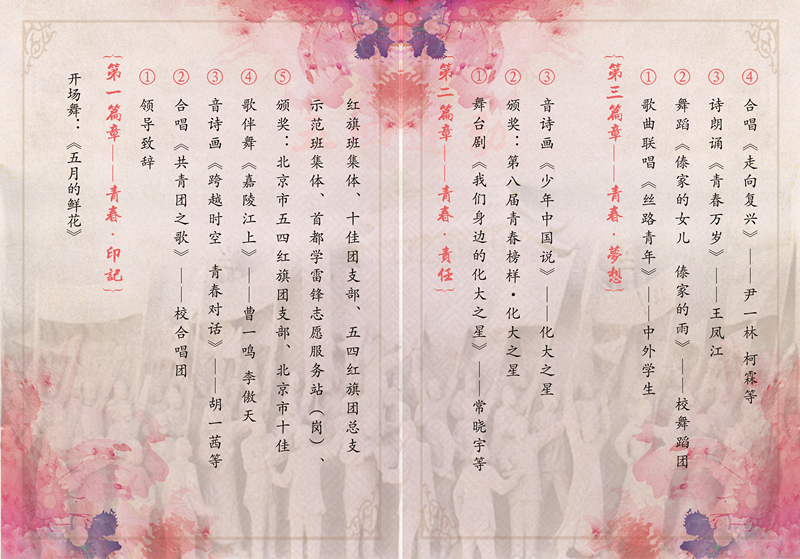 开场舞：《五月的鲜花》
〔第一篇章——青春·印記〕
① 领导致辞
② 合唱《共青团之歌》——校合唱团
③ 音诗画《跨越时空 青春对话》——胡一茜等
④ 歌伴舞《嘉陵江上》——曹一鸣 李傲天
⑤ 颁奖：北京市五四红旗团支部、北京市十佳
示范班集体、首都学雷锋志愿服务站（岗）、
红旗班集体、十佳团支部、五四红旗团总支
〔第二篇章——青春·責任〕
① 舞台剧《我们身边的化大之星》——常晓宇等
② 颁奖：第八届青春榜样·化大之星
③ 音诗画《少年中国说》——化大之星
〔第三篇章——青春·夢想〕
① 歌曲联唱《丝路青年》——中外学生
② 舞蹈《傣家的女儿 傣家的雨》——校舞蹈团
③ 诗朗诵《青春万岁》——王凤江
④ 合唱《走向复兴》——尹一林 柯霖等